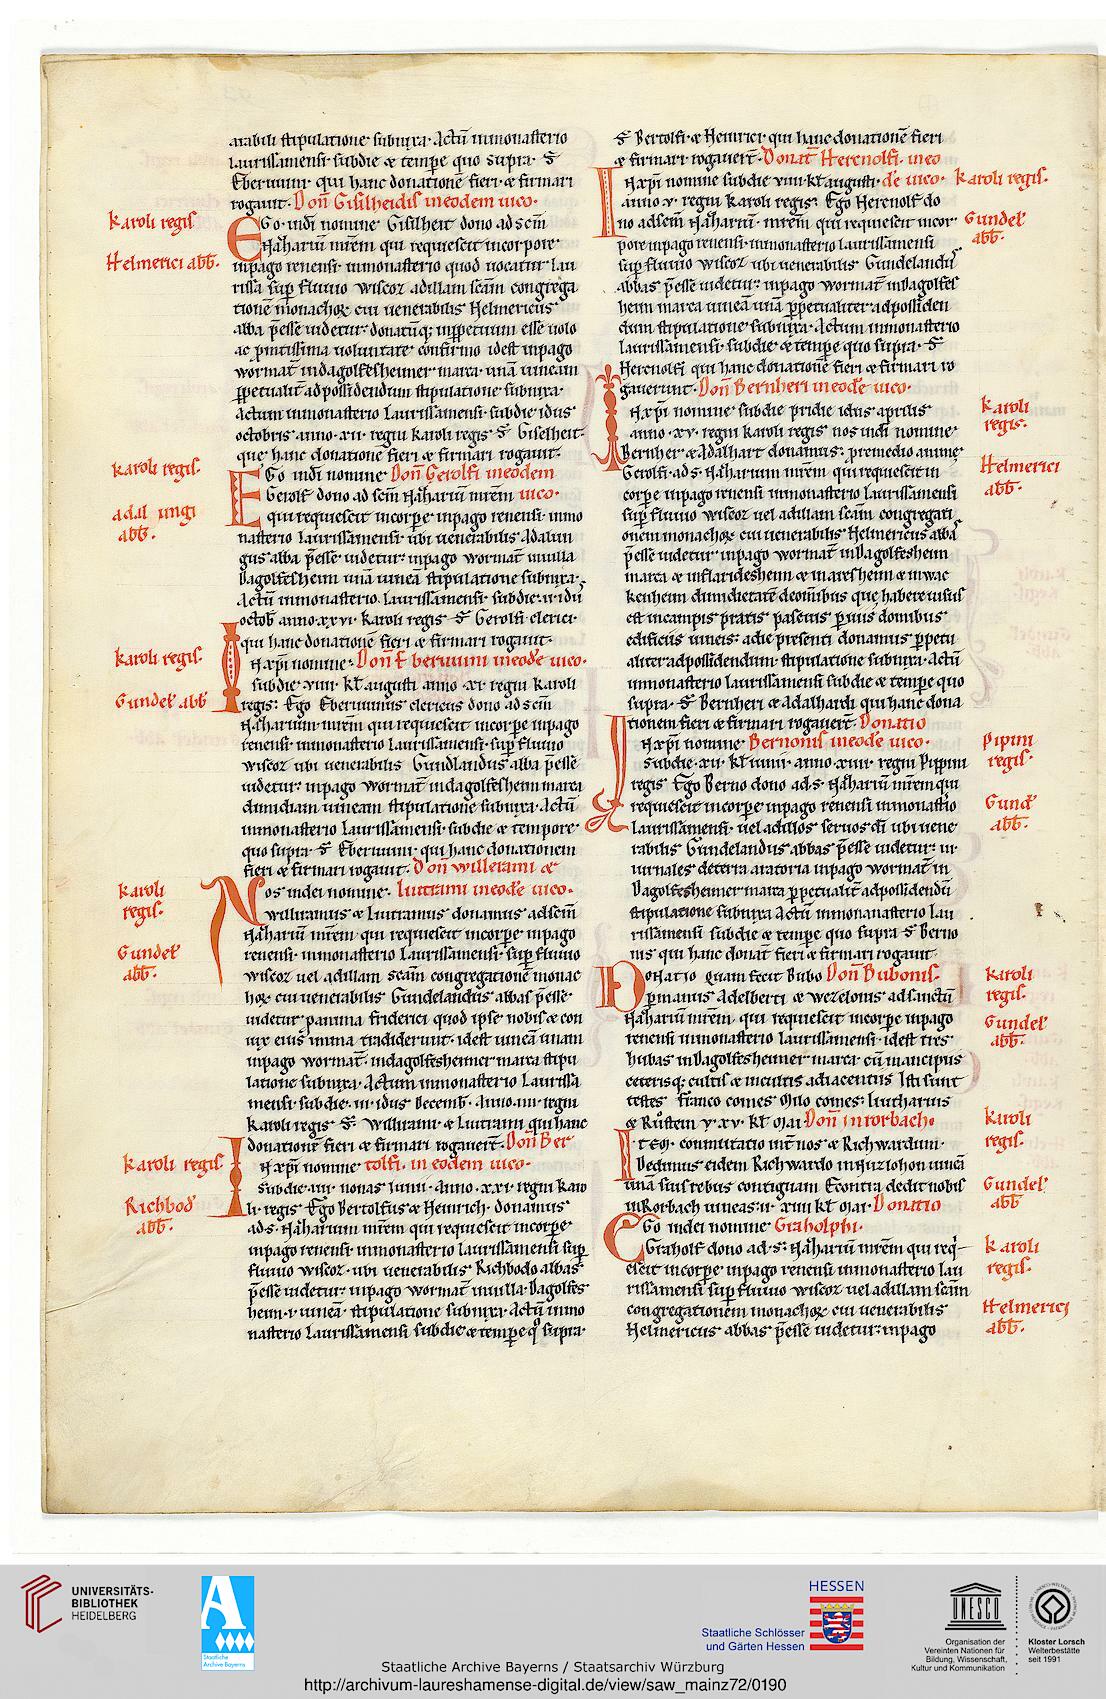 arabili stipulatione subnixa. Actū inmonasterio
laurissamensi. subdie & tempe quo supra. S̄
Eberuuini. qui hanc donationē fieri. & firmari
rogauit. Don̄ Gisilheidis ineodem uico.
Karoli regis
EGo. indī nomine Gisilheit dono ad scm̄
Nazariū mr̄em qui requiescit incorpore.
Helmerici abb̄.
inpago renensi. inmonasterio quod uocatur lau
rissa sup̄ fluuio wiscoz adillam scām congrega
tionē monachoꝝ cui uenerabilis Helmericus
abba p̄esse uidetur. donatūq; inp̄petuum esse uolo
ac p̄mtissima uoluntate confirmo idest inpago
wormat̄ indagolfesheimer marca. unā uineam
p̄petualit̄ ad possidendum stipulatione subnixa.
Actum inmonasterio Laurissamensi. subdie idus
octobris. anno. xii. regni Karoli regis. S̄ Giselheit.
que hanc donatione fieri & firmari rogauit.
Karoli regis.
EGo indī nomine Don̄ Gerolfi ineodem
Gerolf dono ad scm̄ Nazariū mr̄em uico.
adal ungi
abb̄.
qui requiescit incorpe. inpago renensi. inmo
nasterio Laurissamensi. ubi uenerabilis Adalun
gus abba p̄esse uidetur. inpago wormat̄ inuilla
Dagolfesheim unā uineā stipulatione subnixa.
Actū inmonasterio. Laurissamensi. subdie. ii. idū
octob̄ anno. xxvi. Karoli regis S̄ Gerolfi clerici.
qui hanc donationē fieri & firmari rogauit.
Karoli regis.
IN xp̄i nomine. Don̄ Eberuuini ineodē uico.
subdie. viii. kl̄ augusti anno xi. regni Karoli
Gundel̄ abb̄
regis. Ego Eberuuinus clericus dono ad scm̄
Nazarium mr̄em qui requiescit incorpe inpago
renensi. inmonasterio Laurissamensi. sup̄ fluuio
wiscoz ubi uenerabilis Gundlandus abba p̄esse
uidetur. inpago wormat̄ indagolfesheim marca
dimidiam uineam stipulatione subnixa. Actū
inmonasterio Laurissamensi. subdie & tempore
quo supra. S̄ Eberuuini. qui hanc donationem
fieri & firmari rogauit. Don̄ Willerami &
Karoli
regis.
Nos indei nomine. Liutrami ineodē uico.
Williramus & Liutramus donamus ad scm̄
Nazariū mr̄em. qui requiescit incorpe inpago
Gundel̄
abb̄.
renensi. inmonasterio Laurissamensi. sup̄ fluuio
wiscoz uel adillam scām congregationē monac
hoꝝ cui uenerabilis Gundelandus abbas p̄esse
uidetur panima friderici quod ipse nobis & con
iux eius imma tradiderunt. idest uineā unam
inpago wormat̄. indagolfesheimer marca stipu
latione subnixa. Actum inmonasterio Laurissa
mensi. subdie. iii. idus Decemb̄. Anno. iiii. regni
Karoli regis S̄. Willirami. & Liutrami qui hanc
donationē fieri & firmari rogauert̄. Don̄ Ber
Karoli regis.
IN xp̄i nomine tolfi. in eodem uico.
subdie. iiii. nonas iunii. Anno. xxi. regni Karo
Richbod̄
abb̄.
li. regis Ego Bertolfus & Heinrich. donamus
ad. s. Nazarium mr̄em qui requiescit incorpe.
inpago renensi. inmonasterio Laurissamensi sup̄
fluuio wiscoz. ubi uenerabilis Richbodo abbas
p̄esse uidetur. inpago wormat̄ inuilla. Dagolfes
heim. i. uineā. stipulatione subnixa. Actū inmo
nasterio Laurissamensi subdie & tempe q̊ supra.
S̄ Bertolfi. & Heinrici. qui hanc donationē fieri
& firmari rogauert̄. Donat̄ Herenolfi. ineo
IN xp̄i nomine subdie viii. kl̄ augusti. dē uico.
Karoli regis.
anno. v. regni Karoli regis. Ego Herenolf do
no ad scm̄ Nazariū. mr̄em. qui requiescit incor
Gundel̄
abb̄.
pore inpago renensi. inmonasterio Laurissamensi
sup̄ fluuio wiscoz ubi uenerabilis Gundelandus
abbas p̄esse uidetur. inpago wormat̄ inDagolfes
heim marca uineā unā p̄petualiter ad possiden
dum stipulatione subnixa. Actum inmonasterio
Laurissamensi. subdie & tempe quo supra. S̄
Herenolfi qui hanc donationē fieri & firmari ro
gauerunt. Don̄ Bernheri ineodē uico.
IN xp̄i nomine subdie pridie idus aprilis
Karoli
regis.
anno. xv. regni Karoli regis nos indī nomine
Bernher & Adalhart donamus. premedio anime
Gerolfi. ad. s. Nazarium mr̄em qui requiescit in
Helmerici
abb̄.
corpe inpago renensi inmonasterio Laurissamensi
sup̄ fluuio wiscoz uel adillam scām congregati
onem monachoꝝ cui uenerabilis Helmericus abba
p̄esse uidetur inpago wormat̄ inDagolfesheim
marca & inflaridesheim & marisheim & inwac
kenheim dimidietatē deomībus que habere uisus
est incampis pratis pascuis p̄uiis domibus
edificiis uineis. adie presenti donamus p̄petu
aliter ad possidendum. stipulatione subnixa. Actū
inmonasterio laurissamensi subdie & tempe quo
supra. S̄. Bernheri & Adalhardi qui hanc dona
tionem fieri & firmari rogauert̄. Donatio
IN xp̄i nomine. Bernonis ineodē uico.
Pipini
regis.
subdie. xii. kl̄ iunii. anno. xiiii. regni Pippini
regis Ego Berno dono ad. s. Nazariū mr̄em qui
requiescit incorpe inpago renensi inmonastio
Gund̄
abb̄.
Laurissamensi. uel adillos seruos dī ubi uene
rabilis Gundelandus abbas p̄esse uidetur. iii.
iurnales deterra aratoria inpago wormat̄ in
Dagolfesheimer marca p̄petualit̄ ad possidendū
stipulatione subnixa Actū inmonanasterio Lau
rissamensi subdie & tempe quo supra S̄ Berno
nis qui hanc donat̄ fieri & firmari rogauit.
Donatio quam fecit Bubo Don̄ Bubonis.
Karoli
regis.
p̄manus Adelberti & wezelonis ad sanctū
Nazariū mr̄em. qui requiescit incorpe inpago
Gundel̄
abb̄.
renensi inmonasterio laurissamensi. idest tres
hubas inDagolfesheimer marca. cū mancipiis
ceterisq; cultis & incultis adiacentiis Isti sunt
testes. Franco comes Milo comes. Liutharius
& Růstein y. xv. kl̄ Mai. Don̄ in rorbach.
Karoli
regis.
ITEM. conmutatio int̄ nos & Richwardum.
Dedimus eidem Richwardo inflinzlohon uineā
unā suis rebus contiguam Econtra dedit nobis
Gundel̄
abb̄
inRorbach uineas. ii. xiiii kl̄ Mai. Donatio
EGo indei nomine Graholphi.
Graholf dono ad. s. Nazariū mr̄em qui req̄i
Karoli
regis.
escit incorpe. inpago renensi inmonasterio lau
rissamensi sup̄ fluuio wiscoz uel adillam scām
congregationem monachoꝝ cui uenerabilis
Helmerici
abb̄.
Helmericus abbas p̄esse uidetur. inpago
UNIVERSITÄTS-
BIBLIOTHEK
HEIDELBERG
A
Staatliche
Archive Bayerns
Staatliche Schlösser
und Gärten Hessen
HESSEN
UNESCO
Organisation der
Vereinten Nationen für
Bildung, Wissenschaft,
Kultur und Kommunikation
Kloster Lorsch
Welterbestätte
seit 1991
Staatliche Archive Bayerns / Staatsarchiv Würzburg
http://archivum-laureshamense-digital.de/view/saw_mainz72/0190